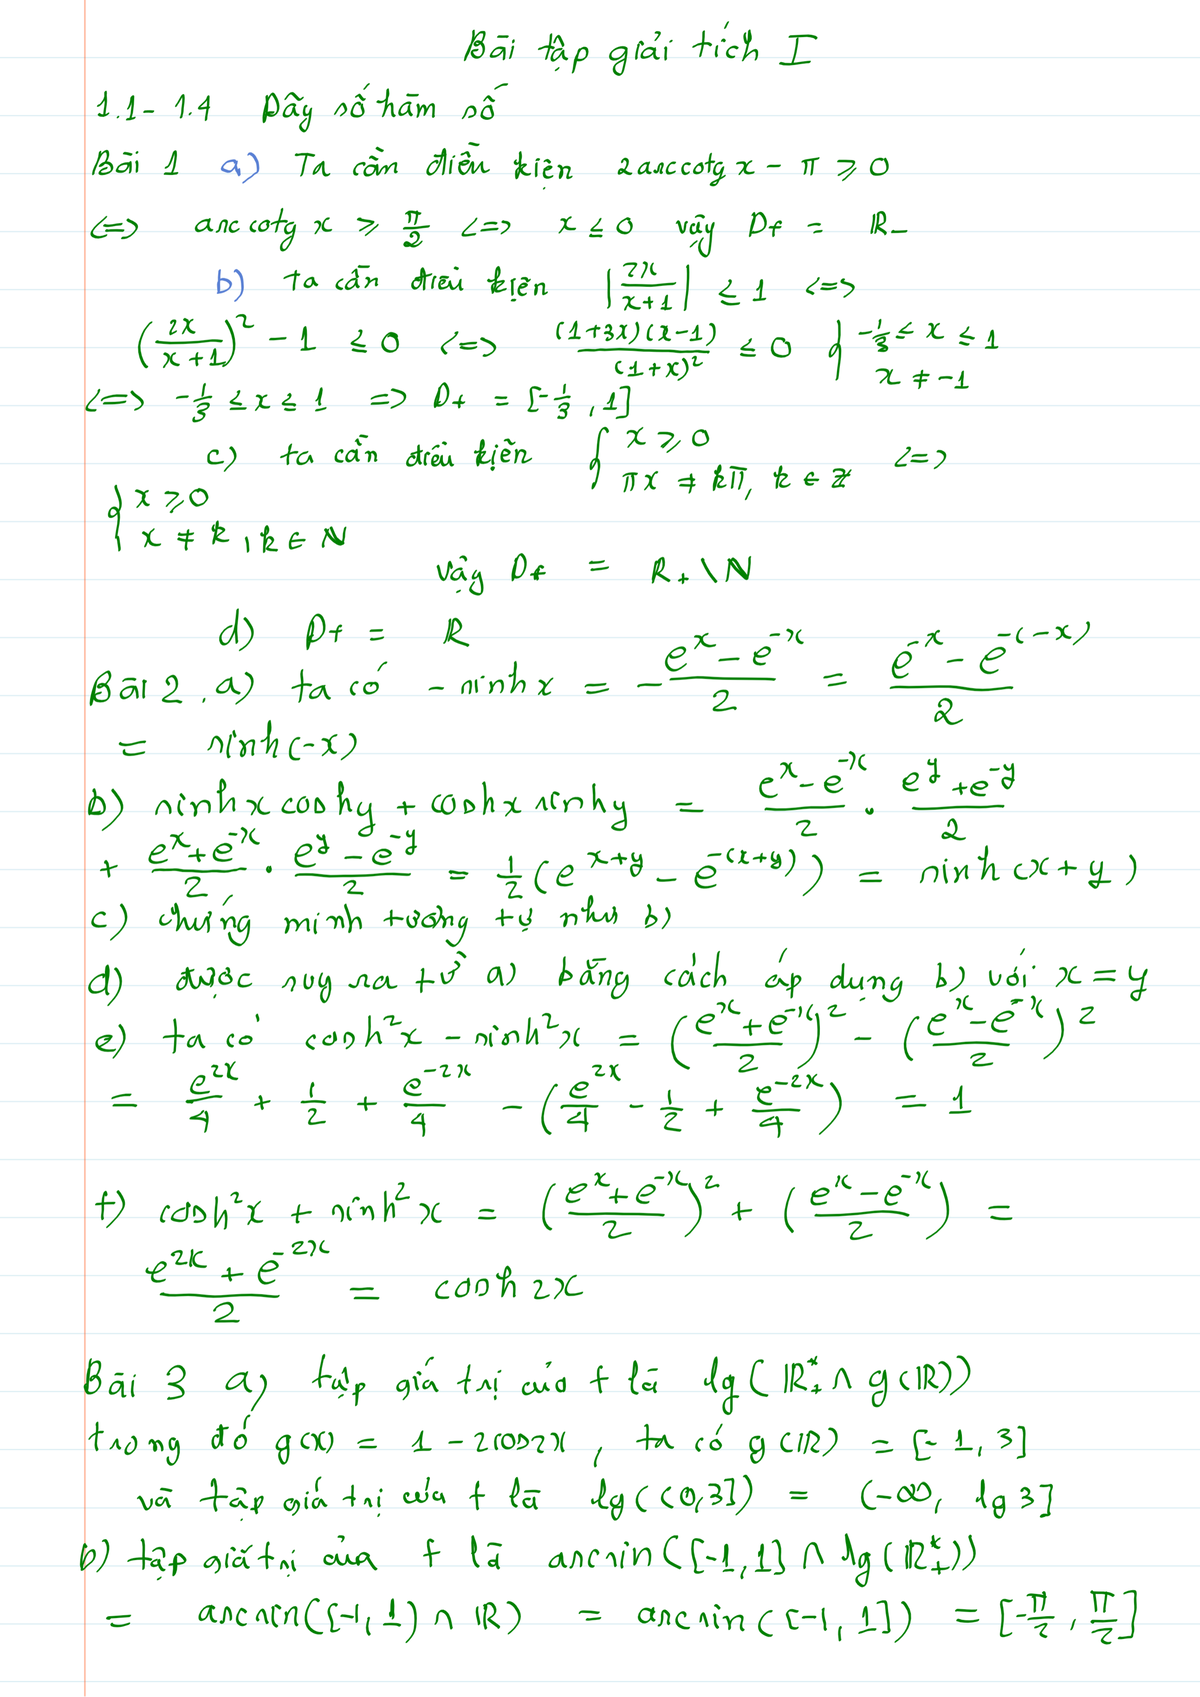 Bài tập giải tích I
1.1 - 1.4 Dãy số hàm số
Bài 1 a) Ta cần điều kiện 2arccotg x - π ⩾ 0
<=> arccotg x ⩾ π/2 <=> x ≤ 0 vậy Df = ℝ_
b) ta cần điều kiện |2x/(x+1)| ≤ 1 <=>
(2x/(x+1))² - 1 ≤ 0 <=> (1+3x)(x-1)/(1+x)² ≤ 0 { -1/3 ≤ x ≤ 1
x ≠ -1
<=> -1/3 ≤ x ≤ 1 => Df = [-1/3, 1]
c) ta cần điều kiện { x ⩾ 0
πx ≠ kπ, k ∈ ℤ <=>
{ x ⩾ 0
x ≠ k, k ∈ ℕ
vậy Df = R₊ \ ℕ
d) Df = ℝ
Bài 2. a) ta có - sinh x = - (e^x - e^-x)/2 = (e^-x - e^-(-x))/2
= sinh(-x)
b) sinh x cosh y + cosh x sinh y = (e^x - e^-x)/2 . (e^y + e^-y)/2
+ (e^x + e^-x)/2 . (e^y - e^-y)/2 = 1/2 (e^(x+y) - e^-(x+y)) = sinh(x+y)
c) chứng minh tương tự như b)
d) được suy ra từ a) bằng cách áp dụng b) với x = y
e) ta có cosh²x - sinh²x = ((e^x + e^-x)/2)² - ((e^x - e^-x)/2)²
= e^2x/4 + 1/2 + e^-2x/4 - (e^2x/4 - 1/2 + e^-2x/4) = 1
f) cosh²x + sinh²x = ((e^x + e^-x)/2)² + ((e^x - e^-x)/2) =
(e^2x + e^-2x)/2 = cosh 2x
Bài 3 a) tập giá trị của f là lg(ℝ*₊ ∩ g(ℝ))
trong đó g(x) = 1 - 2cos2x, ta có g(ℝ) = [-1, 3]
và tập giá trị của f là lg((0,3]) = (-∞, lg 3]
b) tập giá trị của f là arcsin([-1,1] ∩ lg(ℝ*₊))
= arcsin([-1,1) ∩ ℝ) = arcsin([-1,1]) = [-π/2, π/2]